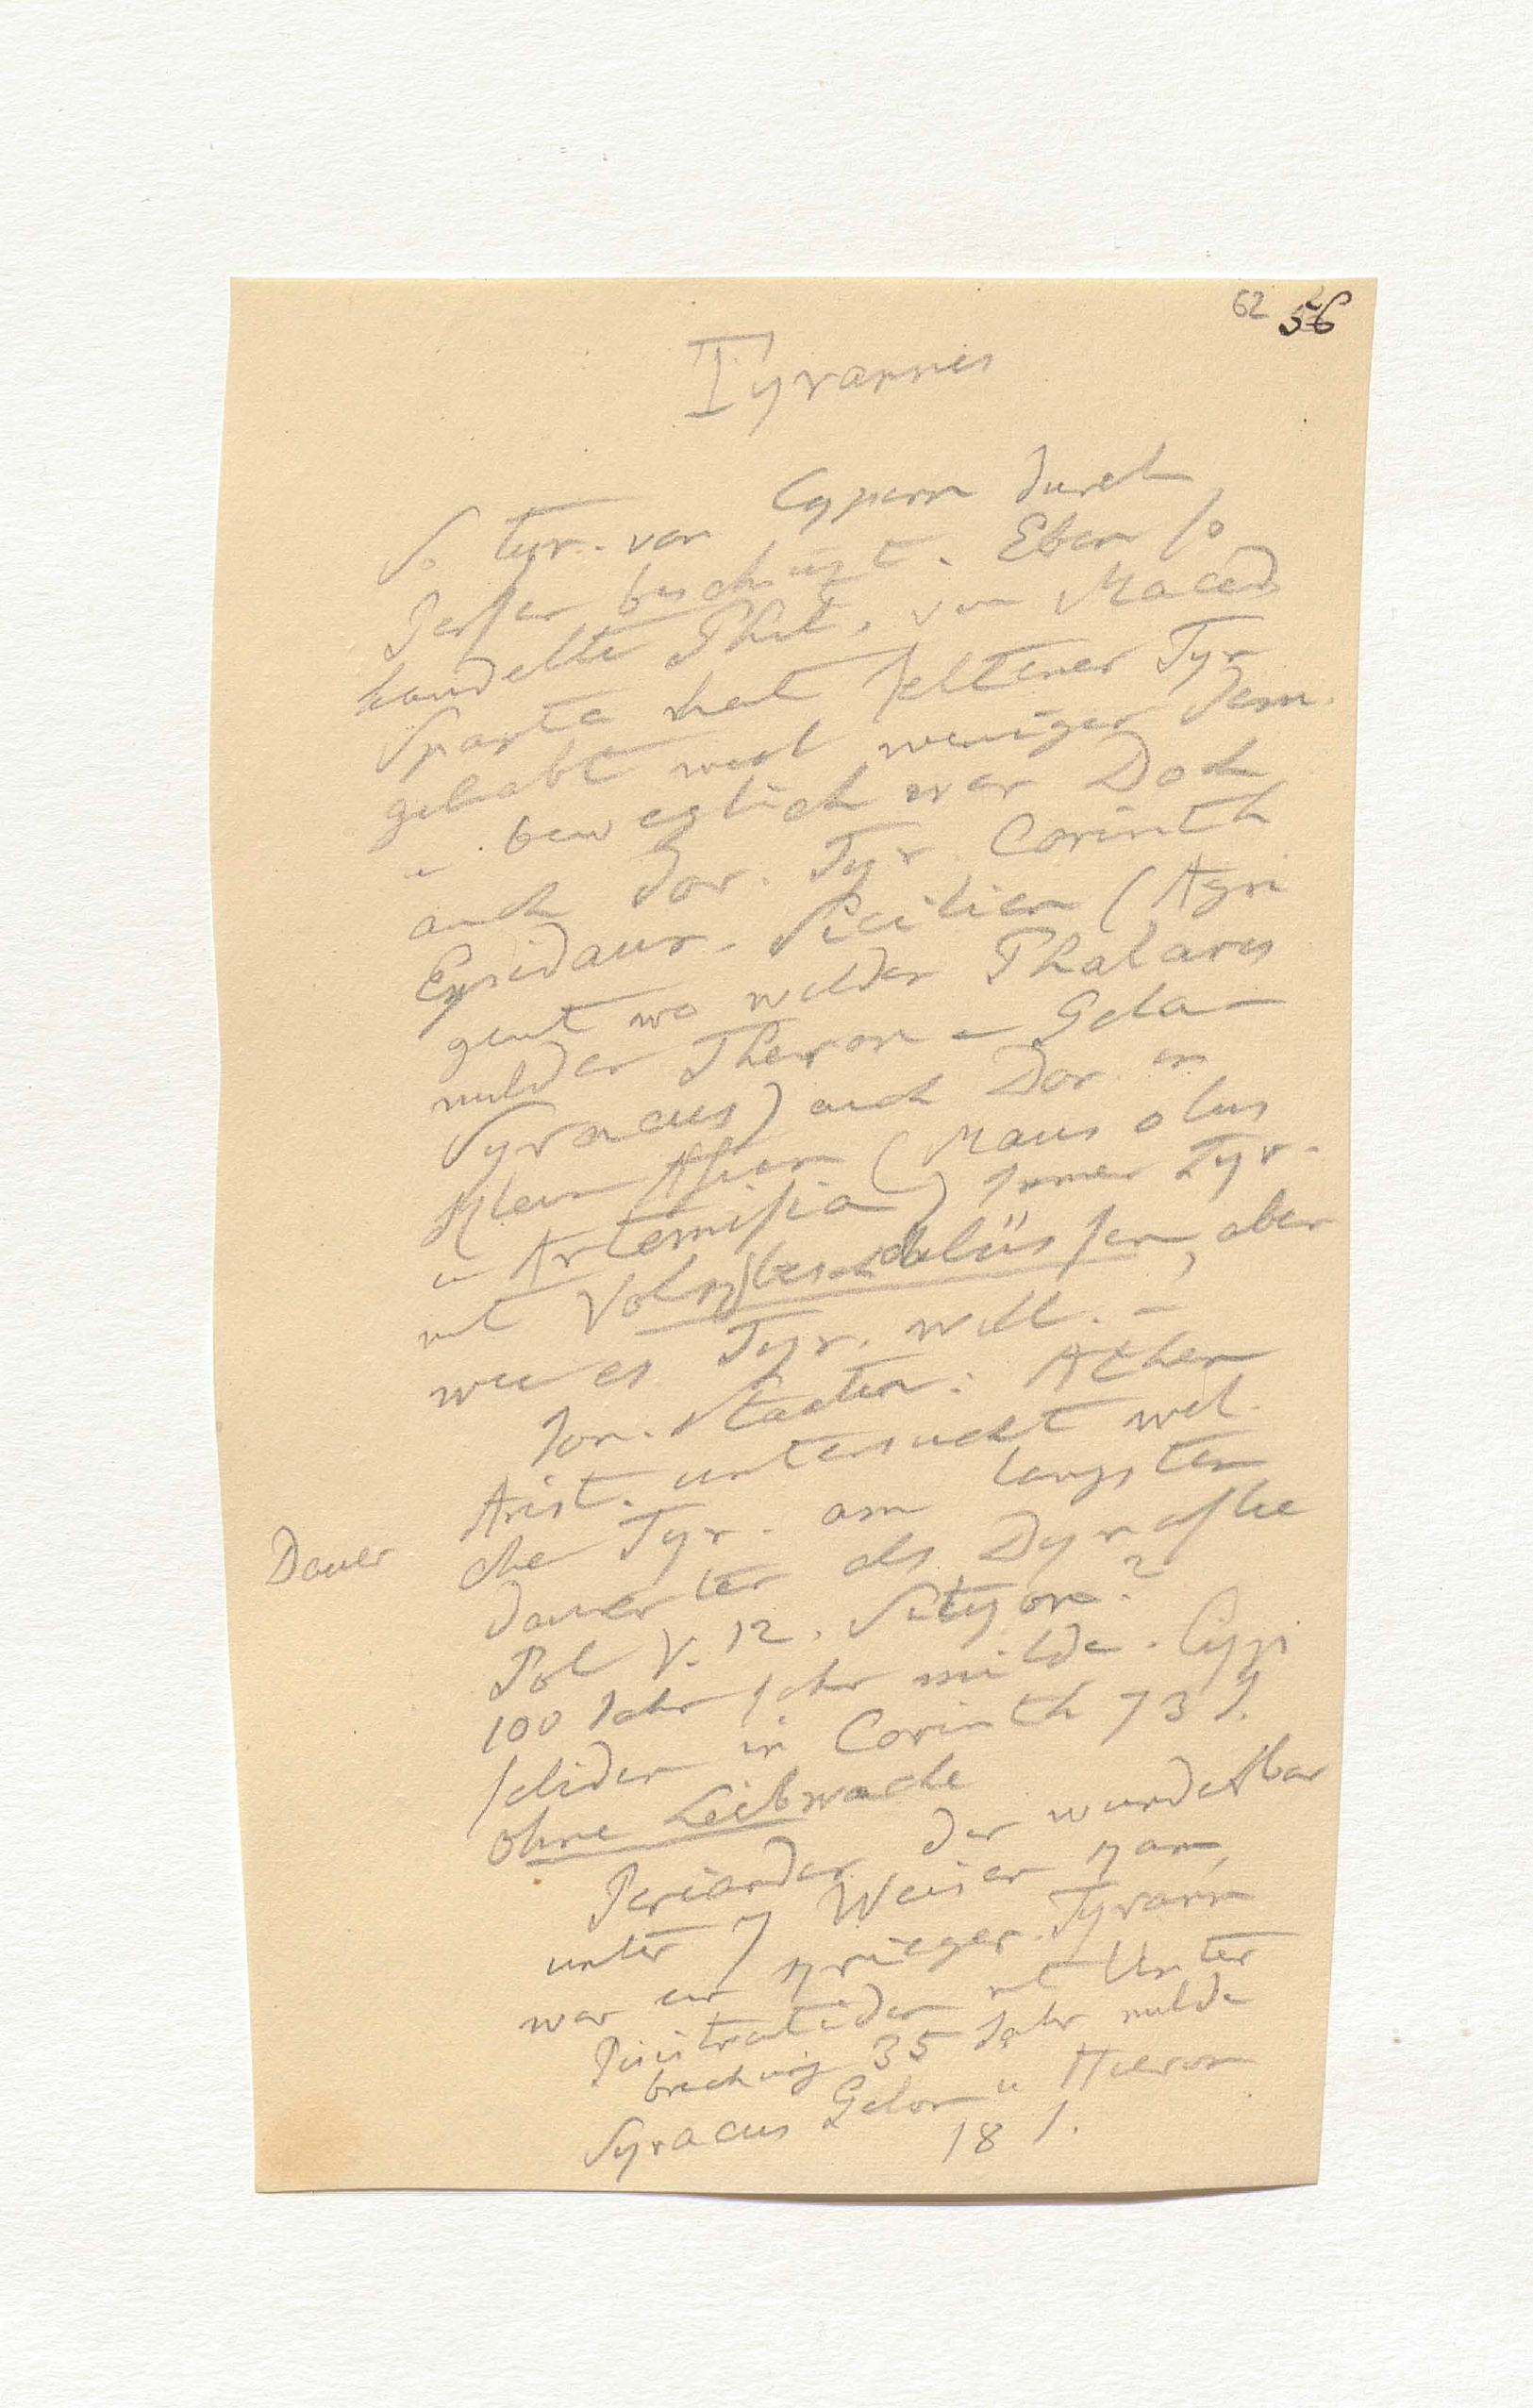 62 56
Tyrannis
So tyr. von Cypern durch
Perser beschüzt. Eben so
handelte Phil. von Maced
Sparta hat seltener Tyr
gehabt weil weniger dem.
u beweglich war Doch
auch dor. Tyr. Corinth
Epidaur. Sicilien (Agri
gent wo wilder Phalaris
milder Theron u Gela
Syracus) auch Dor in
Klein Asien (Mausolus
u Artemisia) immer Tyr.
mit Volksbeschlüssen, aber
wie es Tyr. will. –
Ion. Staaten: Athen
Arist. untersucht wel
che Tyr. am längsten
Dauer
dauerten als Dynastie
Pol V. 12. Sikyon?
100 Jahr sehr milde. Cyp
seliden in Corinth 73 J.
ohne Leibwache
Periander der wunderbar
unter 7 Weisen kam,
war ein krieger. Tyrann
Pisistratiden mit Unter
brechung 35 Jahr milde
Syracus Gelon u Hieron
18 J.